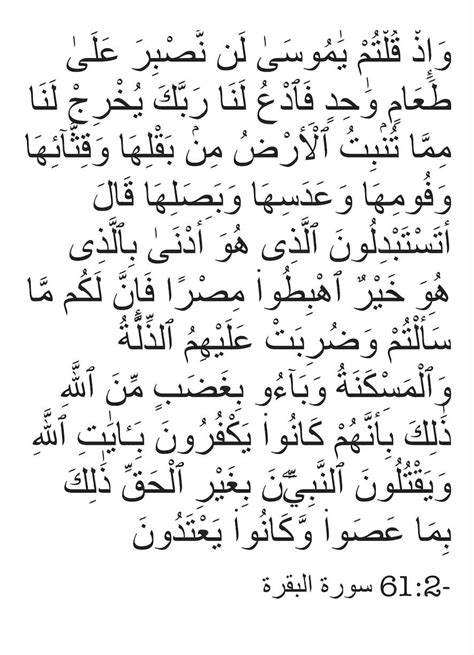 وَإِذْ قُلْتُمْ يَٰمُوسَىٰ لَن نَّصْبِرَ عَلَىٰ
طَعَامٍ وَٰحِدٍ فَٱدْعُ لَنَا رَبَّكَ يُخْرِجْ لَنَا
مِمَّا تُنۢبِتُ ٱلْأَرْضُ مِنۢ بَقْلِهَا وَقِثَّآئِهَا
وَفُومِهَا وَعَدَسِهَا وَبَصَلِهَا قَالَ
أَتَسْتَبْدِلُونَ ٱلَّذِى هُوَ أَدْنَىٰ بِٱلَّذِى
هُوَ خَيْرٌ ٱهْبِطُوا۟ مِصْرًا فَإِنَّ لَكُم مَّا
سَأَلْتُمْ وَضُرِبَتْ عَلَيْهِمُ ٱلذِّلَّةُ
وَٱلْمَسْكَنَةُ وَبَآءُو بِغَضَبٍ مِّنَ ٱللَّهِ
ذَٰلِكَ بِأَنَّهُمْ كَانُوا۟ يَكْفُرُونَ بِـَٔايَٰتِ ٱللَّهِ
وَيَقْتُلُونَ ٱلنَّبِيِّـۧنَ بِغَيْرِ ٱلْحَقِّ ذَٰلِكَ
بِمَا عَصَوا۟ وَّكَانُوا۟ يَعْتَدُونَ
-61:2 سورة البقرة